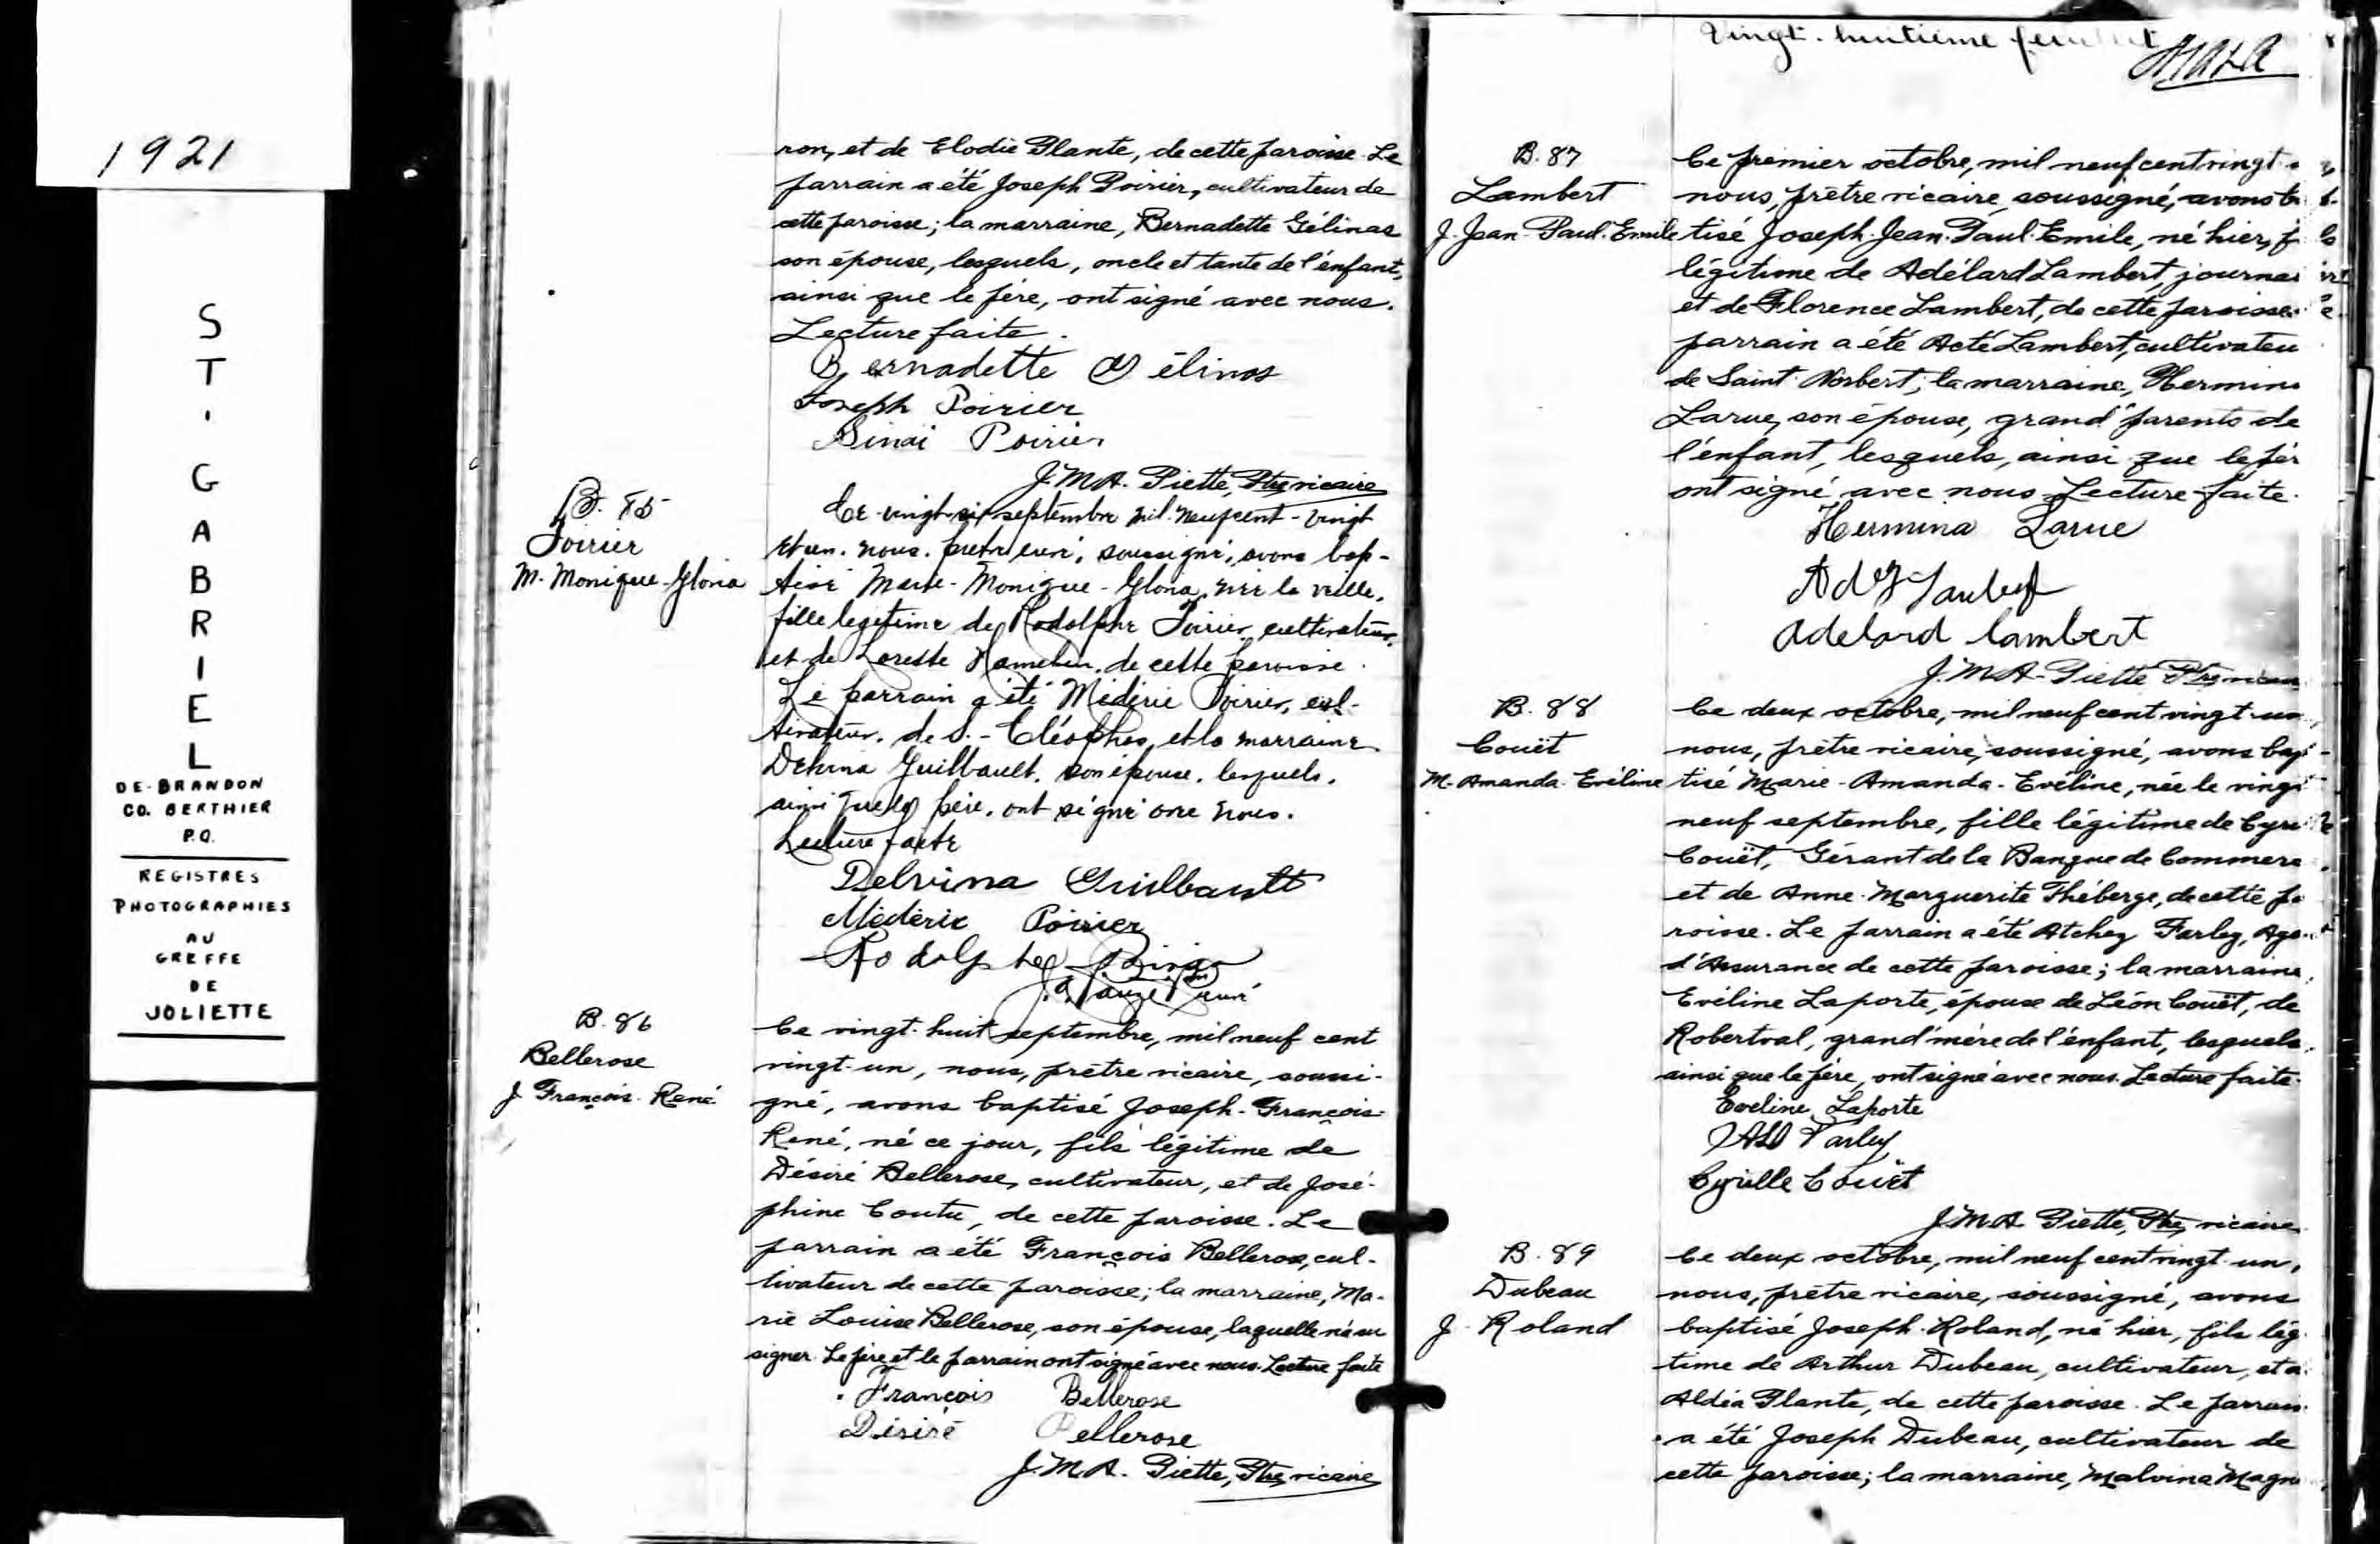 1921
ST. GABRIEL
DE-BRANDON
CO. BERTHIER
P.Q.
REGISTRES
PHOTOGRAPHIES
AU
GREFFE
DE
JOLIETTE
ron, et de Elodie Plante, de cette paroisse. Le
parrain a été Joseph Poirier, cultivateur de
cette paroisse; la marraine, Bernadette Gélinas
son épouse, lesquels, oncle et tante de l'enfant,
ainsi que le père, ont signé avec nous.
Lecture faite.
Bernadette Gélinas
Joseph Poirier
Sinai Poirier
J.M.A. Piette, Ptre, vicaire
B. 85
Poirier
M. Monique-Gloria
Ce vingt-six septembre mil-neuf-cent-vingt
et un. nous. prêtre curé, soussigné, avons bap-
tisé Marie-Monique-Gloria, née la veille,
fille légitime de Rodolphe Poirier, cultivateur,
et de Lorette Hamelin, de cette paroisse.
Le parrain a été Médéric Poirier, cul-
tivateur, de S.-Cléophas, et la marraine
Delvina Guilbault, son épouse, lesquels,
ainsi que le père, ont signé avec nous.
Lecture faite
Delvina Guilbault
Médéric Poirier
Rodolphe Poirier
B. 86
Bellerose
J. François-René
Ce vingt-huit septembre, mil neuf cent
vingt-un, nous, prêtre vicaire, soussi-
gné, avons baptisé Joseph-François-
René, né ce jour, fils légitime de
Désiré Bellerose, cultivateur, et de José-
phine Coutu, de cette paroisse. Le
parrain a été François Bellerose, cul-
tivateur de cette paroisse; la marraine, Ma-
rie Louise Bellerose, son épouse, laquelle n'a su
signer. Le père et le parrain ont signé avec nous. Lecture faite
François Bellerose
Désiré Bellerose
J.M.A. Piette, Ptre, vicaire
Vingt-huitième feuillet
B. 87
Lambert
J. Jean-Paul-Emile
Ce premier octobre, mil neuf cent vingt
nous, prêtre vicaire, soussigné, avons
tisé Joseph-Jean-Paul-Emile, né hier,
légitime de Adélard Lambert,
et de Florence Lambert, de cette paroisse.
parrain a été Acté Lambert, cultivateu
de Saint-Norbert; la marraine, Hermin
Larue, son épouse, grand'parents de
l'enfant, lesquels, ainsi que le pèr
ont signé avec nous. Lecture faite.
Hermina Larue
Adelard Lambert
J.M.A. Piette Ptre, vicaire
B. 88
Couët
M. Amanda-Evéline
Ce deux octobre, mil neuf cent vingt-un,
nous, prêtre vicaire, soussigné, avons bap-
tisé Marie-Amanda-Evéline, née le vingt-
neuf septembre, fille légitime de Cyrille
Couët, Gérant de la Banque de Commerce,
et de Anne-Marguerite Théberge, de cette pa
roisse. Le parrain a été Atchez Farley, Agent
d'Assurance de cette paroisse; la marraine,
Evéline Laporte, épouse de Léon Couët, de
Roberval, grand'mère de l'enfant, lesquels,
ainsi que le père, ont signé avec nous. Lecture faite.
Eveline Laporte
Farley
Cyrille Couët
J.M.A. Piette, Ptre, vicaire
B. 89
Dubeau
J. Roland
Ce deux octobre, mil neuf cent vingt-un,
nous, prêtre vicaire, soussigné, avons
baptisé Joseph-Roland, né hier, fils lég
time de Arthur Dubeau, cultivateur, et
Aldéa Plante, de cette paroisse. Le parrain
a été Joseph Dubeau, cultivateur de
cette paroisse; la marraine, Malvina Magn